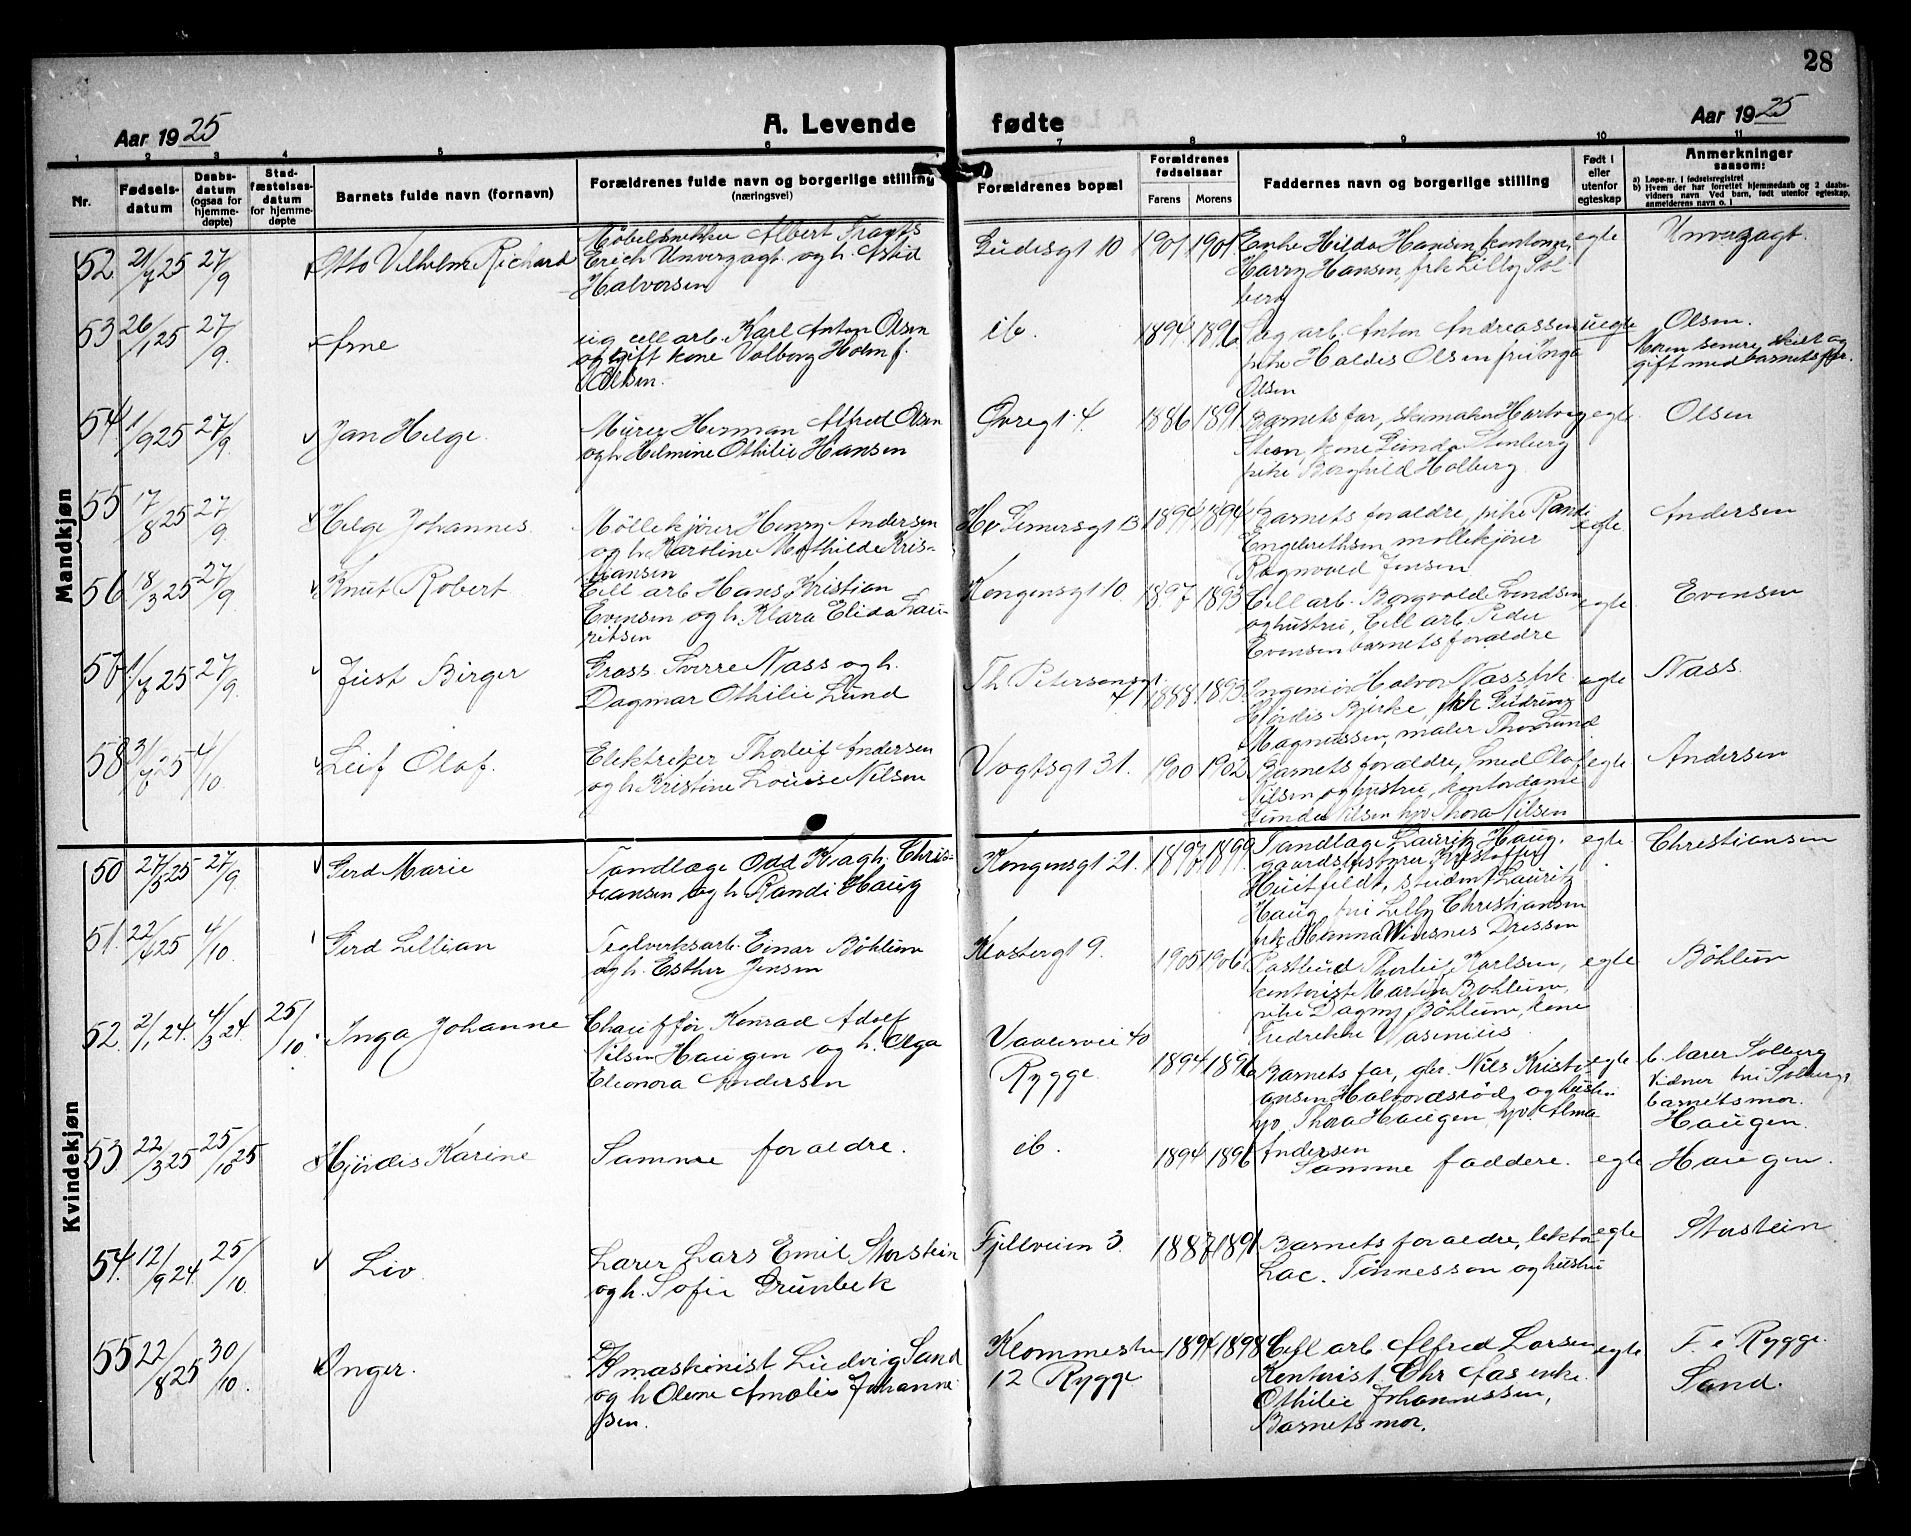 28
Aar 1925
A. Levende
fødte
Aar 1925
1 2 3 4 5 6 7 8 9 10 11
Nr.
Fødsels-
datum
Daabs-
datum
(ogsaa for
hjemme-
døpte)
Stad-
fæstelses-
datum
for hjemme-
døpte
Barnets fulde navn (fornavn)
Forældrenes fulde navn og borgerlige stilling
(næringsvei)
Forældrenes bopæl
Forældrenes
fødselsaar
Farens
Morens
Faddernes navn og borgerlige stilling
Født i
eller
utenfor
egteskap
Anmerkninger
saasom:
a) Løpe-nr. i fødselsregistret
b) Hvem der har forrettet hjemmedaab og 2 daabs-
vidners navn. Ved barn, født utenfor egteskap,
anmelderens navn o. l.
Mandkjøn
52 21/7 25 27/9
Otto Vilhelm Richard
Møbelsnekker Albert Frants
Erich Unverzagt og h. Astrid
Halvorsen
Ludesgt 10
1901 1901
Enke Hilda Hansen, kontorm.
Harry Hansen, frk Lilly Sol-
berg
egte
Unverzagt.
53 26/1 25 27/9
Arne
ug cell arb. Karl Anton Olsen
og gift kone Valborg Holm f.
Olsen.
ib.
1894 1896
Sag arb. Anton Andreassen
pike Haldis Olsen fru Inga
Olsen
uegte
Olsen.
Moren senere skilt og
gift med barnets far.
54 1/9 25 27/9
Jan Helge.
Murer Herman Alfred Olsen
og h Helmine Othilie Hansen
Øvregt. 4.
1886 1891
Barnets far, Hartvig
Steen, kone Gunda Stenberg
pike Borghild Holberg.
egte.
Olsen
55 17/8 25 27/9
Helge Johannes
Møllekjører Henry Andersen
og h. Karoline Mathilde Kris-
tiansen
H. gt 13
1894 1894
Barnets foraldre, pike Randi
Engebrethsen, møllekjører
Ragnvald Jensen
egte
Andersen
56 18/3 25 27/9
Knut Robert
Cell arb Hans Kristian
Evensen og h. Klara Elida Lau-
ritsen
Kongensgt 10.
1897 1893
Cell arb. Borgvald Svendsen
og hustru, Cell arb. Peder
Evensen barnets foraldre
egte.
Evensen
57 1/7 25 27/9
Just Birger
Gross. Sverre Nass og h.
Dagmar Othilie Lund
Th. Petersensgt.
1888 1893
Ingeniør Halvor Nass, frk.
Hjørdis Bjerke, frk Gudrun
Magnussen, maler Thor Lund
egte
Nass.
58 31/7 25 4/10
Leif Olaf.
Elektriker Thorleif Andersen
og h Kristine Louise Nilsen
Vogtsgt 31.
1900 1902
Barnets foraldre, Smed Olaf
Nilsen og hustru, kontordame
Gunda Nilsen hpv Thora Nilsen
egte
Andersen
Kvindekjøn
50 27/5 25 27/9
Gerd Marie
Tandlæge Odd Kragh. Chris-
tiansen og h Randi Haug
Kongensgt. 21.
1897 1899
Tandlæge Lauritz Haug.
gaardsbestyrer Kristoffer
Huitfeldt, student Lauritz
Haug, fru Lelly Christiansen
frk Hanna Winsnes Dressen
egte.
Christiansen
51. 22/6 25 4/10
Gerd Lillian
Teglverksarb. Einar Bøhlum
og h. Esther Jensen
Klostergt 9.
1905 1906
Postbud Thorleif Karlsen,
kontorist Martin Bøhlum,
pike Dagny Bøhlum, kone
Fredrikke
egte
Bøhlum
52. 2/1 24. 4/3 24. 25/10.
Inga Johanne
Chauffør Konrad Adolf
Nilsen Haugen og h. Olga
Eleonora Andersen
Vaalervei 40
Rygge
1894 1896
Barnets far, gbr. Nils Kristi-
ansen Halvordsrød og hustru
hpv. Thora Haugen, hpv. Alma
Andersen
egte
b. lærer Solberg
Vidner fru Solberg
barnets mor.
Haugen.
53 22/3 25 25/10 25
Hjørdis Karine
Samme foraldre.
ib.
1894 1896
Samme faddere.
egte
Haugen.
54. 12/9 24 25/10.
Liv.
Larer Lars Emil Storstein
og h. Sofie Grünbek
Fjellveien 3.
1887 1891
Barnets foraldre, lektor
Lac. Tønnesson og hustru
egte
Storstein
55 22/8 25 30/10.
Inger.
maskinist Ludvig Sand
og h Olene Amalie Johanne
sen.
12 Rygge
1894 1898
Cell arb Alfred Larsen
Kontorist Chr Aas enke
Othilie Johannessen,
Barnets mor.
egte
F. i Rygge.
Sand.